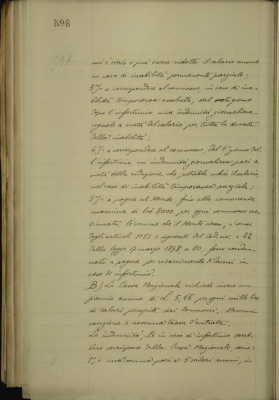 598
cui è stato o può essere ridotto il salario annuo
in caso di inabilità permanente parziale;
3°/- a corrispondere al commesso, in caso di ina-
bilità temporanea assoluta, dal sesto giorno
dopo l'infortunio una indennità giornaliera
uguale a metà del salario, per tutta la durata
della inabilità;
4°/- a corrispondere al commesso, dal 6° giorno del-
l'infortunio, un'indennità giornaliera pari a
metà della riduzione che potrebbe subire il salario,
nel caso di inabilità temporanea parziale;
5°/- a pagare al Monte, fino alla concorrente
massima di lire 8000 per ogni commesso as-
sicurato, le somme che il Monte stesso, a sensi
degli articoli 1151 e seguenti del Cod. civ. e 22
della legge 17 marzo 1898 n. 80, fosse conden-
nato a pagare per risarcimento di danni in
caso di infortunio.
B) La Cassa Nazionale richiede invece un
premio annuo di L. 5,66 per ogni mille lire
di salari percepiti dai commessi, nessuna
esazione e nessuna tassa d'entrata.
Le indennità in caso di infortunio sareb-
bero corrisposte dalla Cassa Nazionale, come:
1°/- una somma pari a 5 salari annui, in